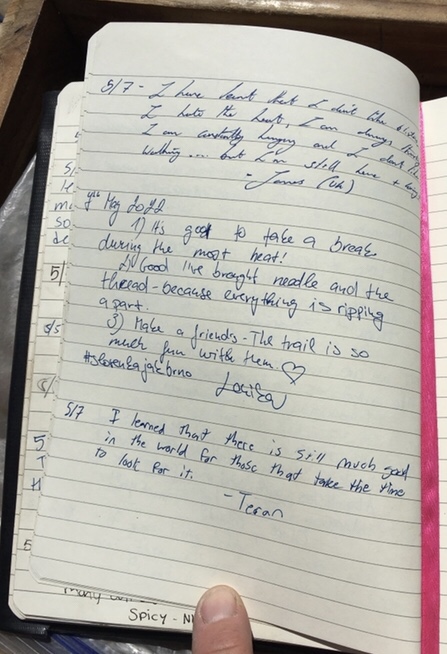 5/7 - I have learnt that I don't like
I hate the heat, I am always
I am constantly hungry and I don't like
walking ... but I'm still here +
- James (UK)
7th May 2022
1) It's good to take a break
during the most heat!
2) Good I've brought needle and the
thread - because everything is ripping
apart.
3) Make a friends - The trail is so
much fun with them. ♡
5/7 I learned that there is still much good
in the world for those that take the time
to look for it.
- Teran
5/
5/
5
SPICY -